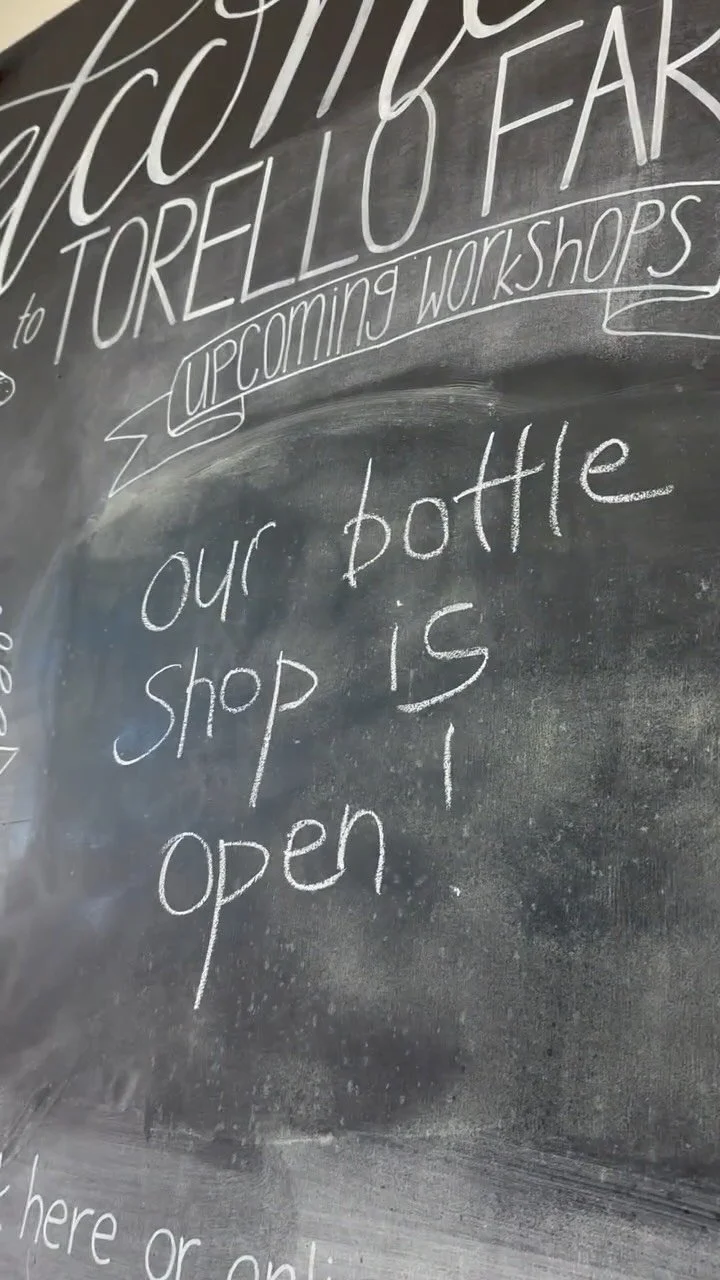 to TORELLO
upcoming workshops
our bottle
shop is
open !
here or